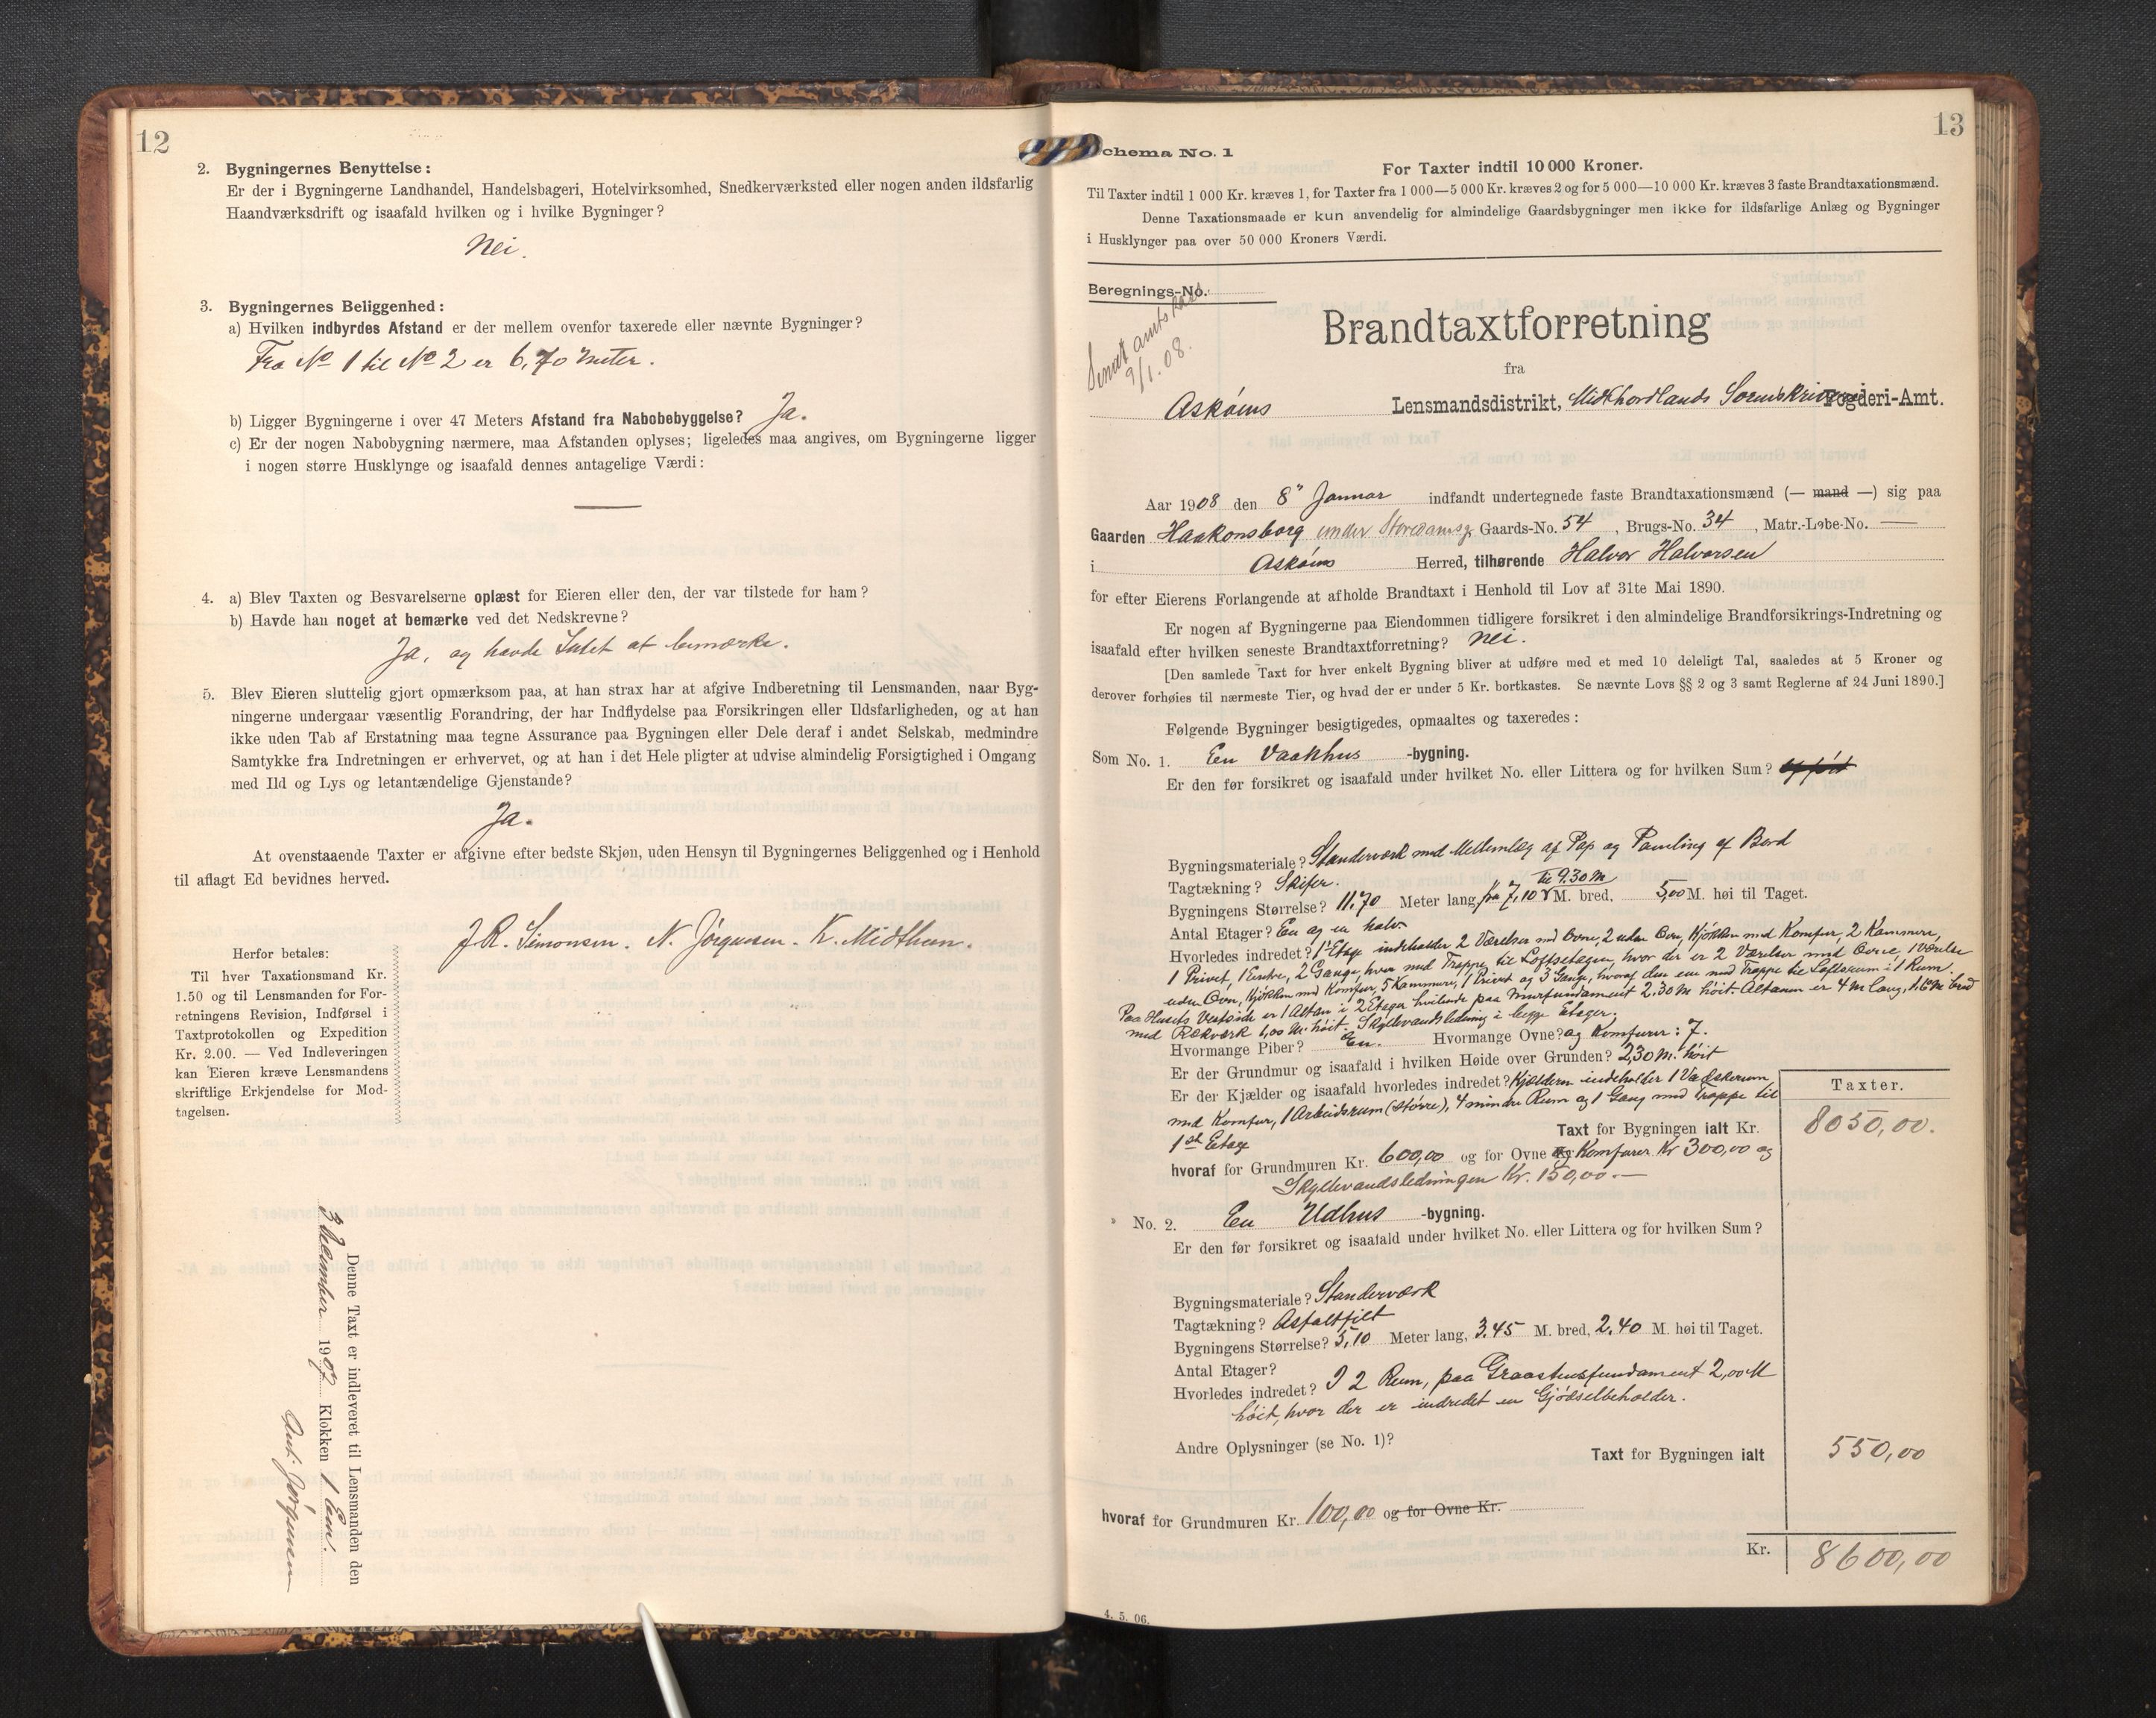 12
2. Bygningernes Benyttelse:
Er der i Bygningerne Landhandel, Handelsbageri, Hotelvirksomhed, Snedkerværksted eller nogen anden ildsfarlig
Haandværksdrift og isaafald hvilken og i hvilke Bygninger?
Nei.
3. Bygningernes Beliggenhed:
a) Hvilken indbyrdes Afstand er der mellem ovenfor taxerede eller nævnte Bygninger?
Fra No 1 til No 2 er 6,70 meter.
b) Ligger Bygningerne i over 47 Meters Afstand fra Nabobebyggelse? Ja.
c) Er der nogen Nabobygning nærmere, maa Afstanden oplyses; ligeledes maa angives, om Bygningerne ligger
i nogen større Husklynge og isaafald dennes antagelige Værdi:
4. a) Blev Taxten og Besvarelserne oplæst for Eieren eller den, der var tilstede for ham?
b) Havde han noget at bemærke ved det Nedskrevne?
Ja, og havde Intet at bemærke.
5. Blev Eieren sluttelig gjort opmærksom paa, at han strax har at afgive Indberetning til Lensmanden, naar Byg-
ningerne undergaar væsentlig Forandring, der har Indflydelse paa Forsikringen eller Ildsfarligheden, og at han
ikke uden Tab af Erstatning maa tegne Assurance paa Bygningen eller Dele deraf i andet Selskab, medmindre
Samtykke fra Indretningen er erhvervet, og at han i det Hele pligter at udvise almindelig Forsigtighed i Omgang
med Ild og Lys og letantændelige Gjenstande?
Ja.
At ovenstaaende Taxter er afgivne efter bedste Skjøn, uden Hensyn til Bygningernes Beliggenhed og i Henhold
til aflagt Ed bevidnes herved.
J. R. Simonsen. N. Jørgensen. K. Midthun.
Herfor betales:
Til hver Taxationsmand Kr.
1.50 og til Lensmanden for For-
retningens Revision, Indførsel i
Taxtprotokollen og Expedition
Kr. 2.00. — Ved Indleveringen
kan Eieren kræve Lensmandens
skriftlige Erkjendelse for Mod-
tagelsen.
Denne Taxt er indleveret til Lensmanden den
3 December 1907 Klokken 1 Em.
Ant. Jørgensen
13
chema No. 1
For Taxter indtil 10 000 Kroner.
Til Taxter indtil 1 000 Kr. kræves 1, for Taxter fra 1 000—5 000 Kr. kræves 2 og for 5 000—10 000 Kr. kræves 3 faste Brandtaxationsmænd.
Denne Taxationsmaade er kun anvendelig for almindelige Gaardsbygninger men ikke for ildsfarlige Anlæg og Bygninger
i Husklynger paa over 50 000 Kroners Værdi.
Beregnings-No.
9/1. 08.
Brandtaxtforretning
fra
Askøens Lensmandsdistrikt, Midthordlands Sorenskriveri Fogderi-Amt.
Aar 1908 den 8" Januar indfandt undertegnede faste Brandtaxationsmænd (— mand —) sig paa
Gaarden Haakonsborg under Storedamsg Gaards-No. 54, Brugs-No. 34, Matr.-Løbe-No. —
i Askøens Herred, tilhørende Halvor Halvorsen
for efter Eierens Forlangende at afholde Brandtaxt i Henhold til Lov af 31te Mai 1890.
Er nogen af Bygningerne paa Eiendommen tidligere forsikret i den almindelige Brandforsikrings-Indretning og
isaafald efter hvilken seneste Brandtaxtforretning? Nei.
[Den samlede Taxt for hver enkelt Bygning bliver at udføre med et med 10 deleligt Tal, saaledes at 5 Kroner og
derover forhøies til nærmeste Tier, og hvad der er under 5 Kr. bortkastes. Se nævnte Lovs §§ 2 og 3 samt Reglerne af 24 Juni 1890.]
Følgende Bygninger besigtigedes, opmaaltes og taxeredes:
Som No. 1. En Vaanhus -bygning.
Er den før forsikret og isaafald under hvilket No. eller Littera og for hvilken Sum?
Bygningsmateriale? Standerværk med Mellemlæg af Pap og Paneling af Bord
Tagtækning? Skifer.
til 9.30 M
Bygningens Størrelse? 11.70 Meter lang, fra 7,10 M. bred, 5,00 M. høi til Taget.
Antal Etager? En og en halv
Hvorledes indredet? 1ste Etage indeholder 2 Værelser med Ovne, 2 uden Ovn, Kjøkken med Komfur, 2 Kammere,
1 Privet, 1 Entre, 2 Gange, hvor med Trappe til Loftsetagen, hvor der er 2 Værelser med Ovne, 1 Værelse
uden Ovn, Kjøkken med Komfur, 5 Kammere, 1 Privet og 3 Gange, hvoraf den ene med Trappe til Loftsrum i 1 Rum.
Paa Husets Vestside er 1 Altan i 2 Etager hvilende paa Murfundament 2.30 M høit. Altanen er 4 M lang, 1.60 M bred
med Rækværk 1,00 M. høit. Skyllevandsledning i begge Etager.
Hvormange Piber? En. Hvormange Ovne? og Komfurer: 7.
Er der Grundmur og isaafald i hvilken Høide over Grunden? 2,30 M. høit
Er der Kjælder og isaafald hvorledes indredet? Kjælderen indeholder 1 Vadskerum
med Komfur, 1 Arbeidsrum (større), 4 mindre Rum og 1 Gang med Trappe til
1ste Etage
Taxter.
Taxt for Bygningen ialt Kr. 8050,00.
hvoraf for Grundmuren Kr. 600,00 og for Ovne og Komfurer Kr 300,00 og
Skyllevandsledningen Kr. 150,00.—
No. 2. En Udhus -bygning.
Er den før forsikret og isaafald under hvilket No. eller Littera og for hvilken Sum?
Bygningsmateriale? Standerværk
Tagtækning? Asfaltfilt
Bygningens Størrelse? 5,10 Meter lang, 3.45 M. bred, 2.40 M. høi til Taget.
Antal Etager?
Hvorledes indredet? I 2 Rum, paa Graastensfundament 2,00 M
høit, hvor der er indredet en Gjødselbeholder.
Andre Oplysninger (se No. 1)?
Taxt for Bygningen ialt 550,00
hvoraf for Grundmuren Kr. 100,00 og for Ovne Kr.
Kr. 8600,00
4. 5. 06.